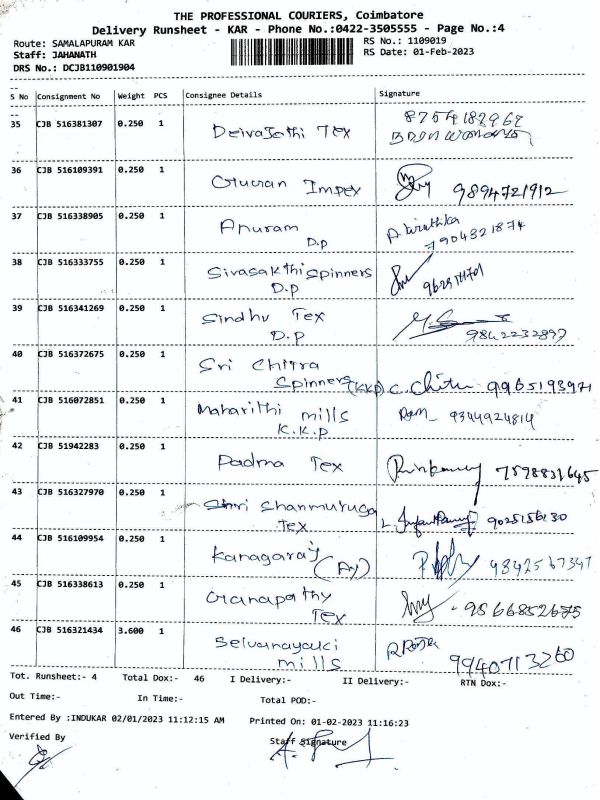 THE PROFESSIONAL COURIERS, Coimbatore
Delivery Runsheet - KAR - Phone No.:0422-3505555 - Page No.:4
Route: SAMALAPURAM KAR
RS No.: 1109019
Staff: JAHANATH
RS Date: 01-Feb-2023
DRS No.: DCJB110901904
S No Consignment No Weight PCS Consignee Details Signature
35 CJB 516381307 0.250 1 DeivaJothi Tex 8754182962
36 CJB 516109391 0.250 1 Guran Impex 9894721912
37 CJB 516338905 0.250 1 Anuram
D.p
7904321874
38 CJB 516333755 0.250 1 Sivasakthi spinners
D.p
39 CJB 516341269 0.250 1 Sindhu Tex
D.p 9842232897
40 CJB 516372675 0.250 1 Sri Chitra
Spinners (KKP) C. Chitu 9965193971
41 CJB 516072851 0.250 1 Maharithi mills 9344924814
K.K.p
42 CJB 51942283 0.250 1 Padma Tex 7598831645
43 CJB 516327970 0.250 1 Shri Shanmuruga
Tex 9025156130
44 CJB 516109954 0.250 1 Kanagaraj
(Ay) 9342567347
45 CJB 516338613 0.250 1 Ganapathy
Tex 9566852675
46 CJB 516321434 3.600 1 Selvanayaki
mills 9940713260
Tot. Runsheet:- 4 Total Dox:- 46 I Delivery:- II Delivery:- RTN Dox:-
Out Time:- In Time:- Total POD:-
Entered By :INDUKAR 02/01/2023 11:12:15 AM Printed On: 01-02-2023 11:16:23
Verified By Staff Signature